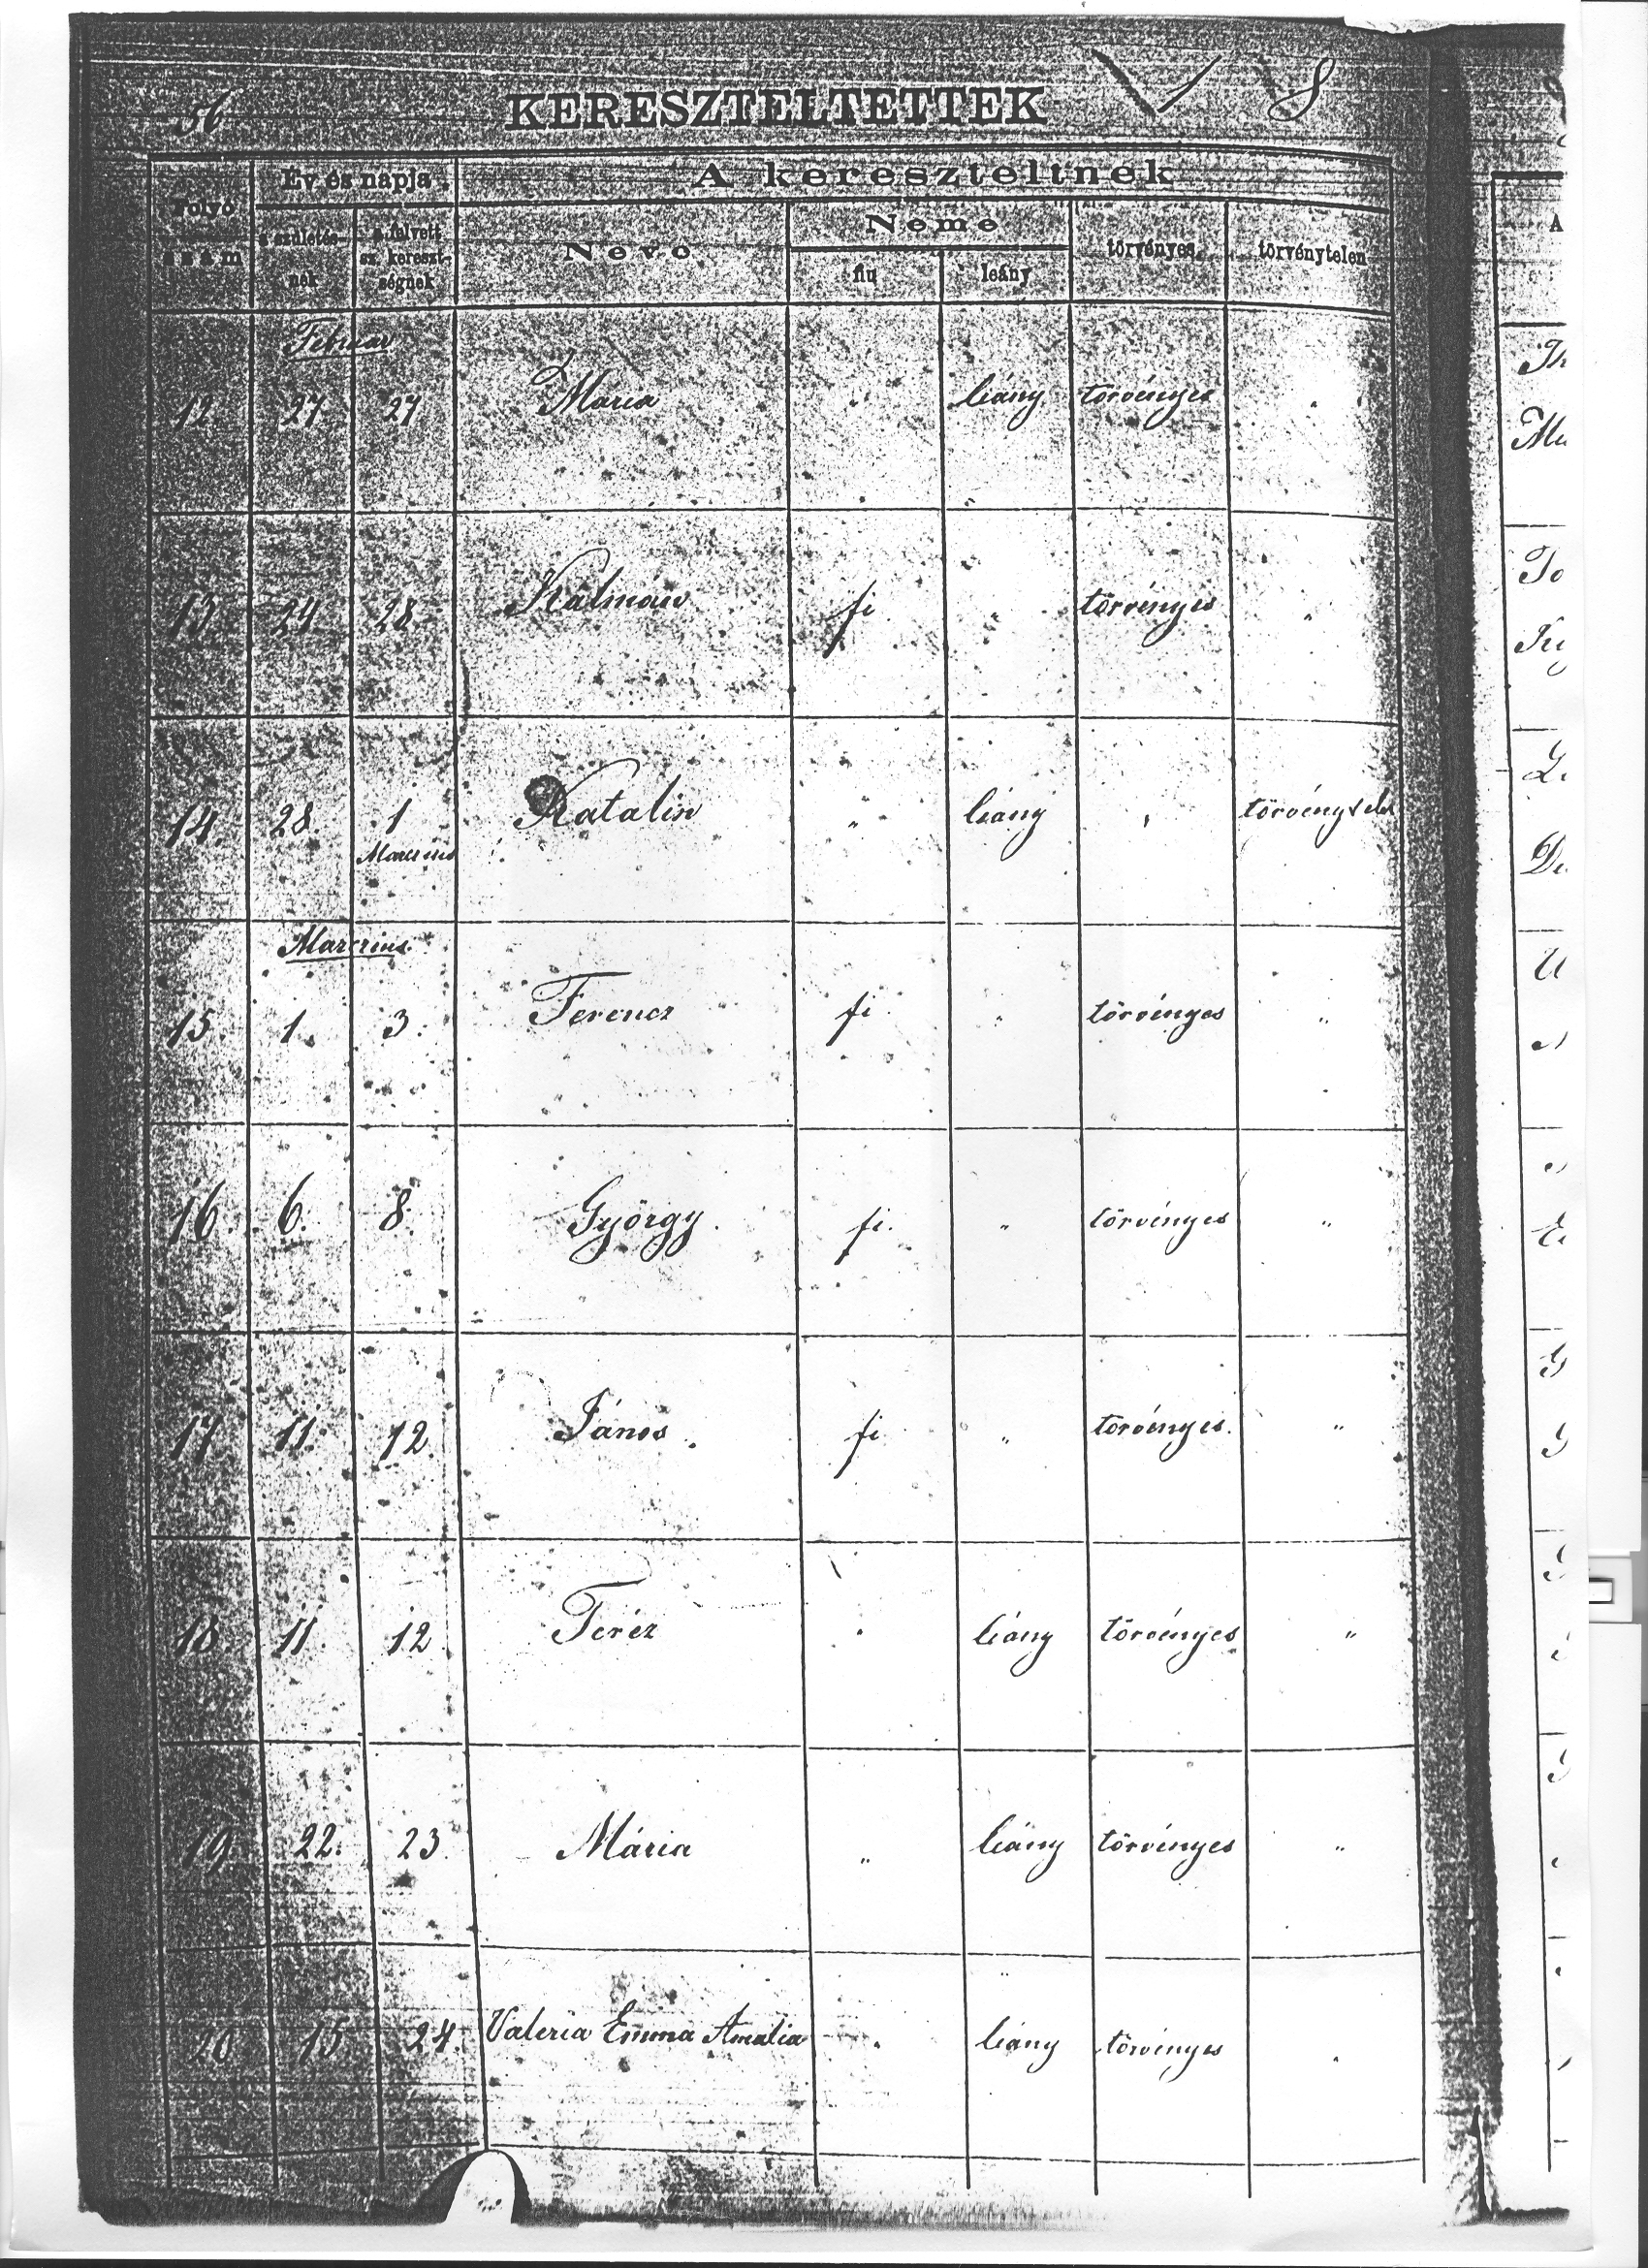 56 KERESZTELTETTEK 1 8
Folyó szám
Év és napja
A kereszteltnek
a születés-nek
a felvett sz. kereszt-ségnek
Neve
Neme
fiu
leány
törvényes
törvénytelen
Februar
12. 27 27 Mária " leány törvényes "
13. 24. 28. Kálmán fi " törvényes "
14. 28. 1 Katalin " leány " törvénytelen
Marczius
Marczius
15. 1. 3. Ferencz fi " törvényes "
16 6. 8. György. fi. " törvényes "
17 11. 12. János. fi " törvényes. "
18 11. 12. Teréz " leány törvényes "
19. 22. 23. Mária " leány törvényes "
20 15 24. Valeria Emma Amalia " leány törvényes "